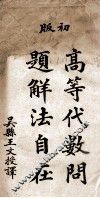 初版
高等代數問
題解法自在
吳縣王文授譯